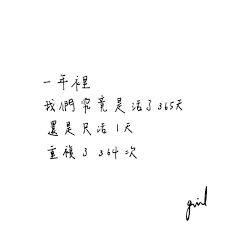 一年裡
我們究竟是活了365天
還是只活1天
重複了364次